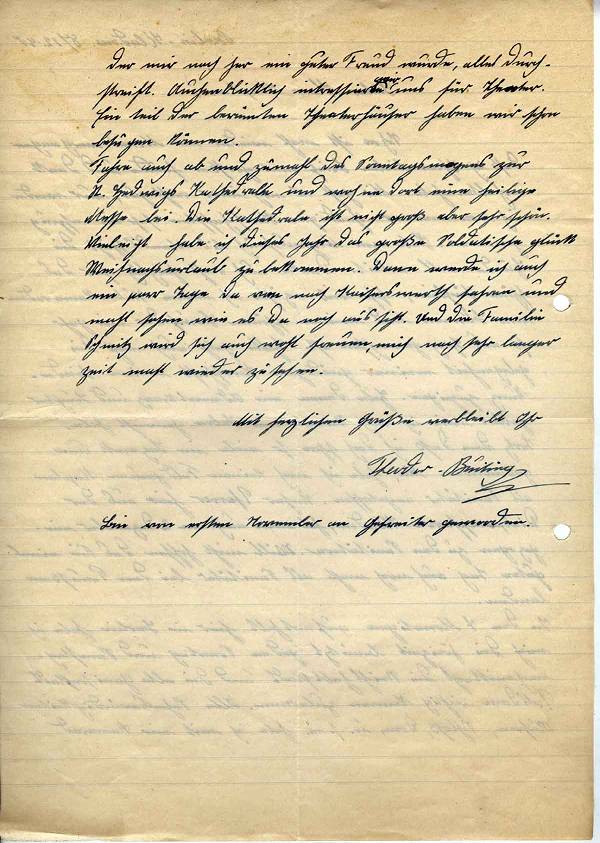 der mir nach her ein guter Freund wurde, alles durch-
streift. Augenblicklich intressieren wir uns für Theater.
Ein teil der berümten Theaterhäuser haben wir schon
besuchen können.
Fahre auch ab und zumahl des Sonntagsmorgens zur
St. Hedwigs Kathedralle und wohne dort eine heilige
Messe bei. Die Kathedrale ist nicht groß aber sehr schön.
Vieleicht habe ich dieses Jahr das große Soldatische glück
Weihnagsurlaub zu bekommen. Dann werde ich auch
ein paar Tage da von nach Kaiserswerth fahren und
mahl sehen wie es da noch aus siht. Und die Familie
Schmitz wird sich auch wohl freuen, mich nach sehr langer
zeit mahl wieder zu sehen.
Mit herzlichen Grüße verbleibt Ihr
Theodor
Bin von ersten November an Gefreiter geworden.